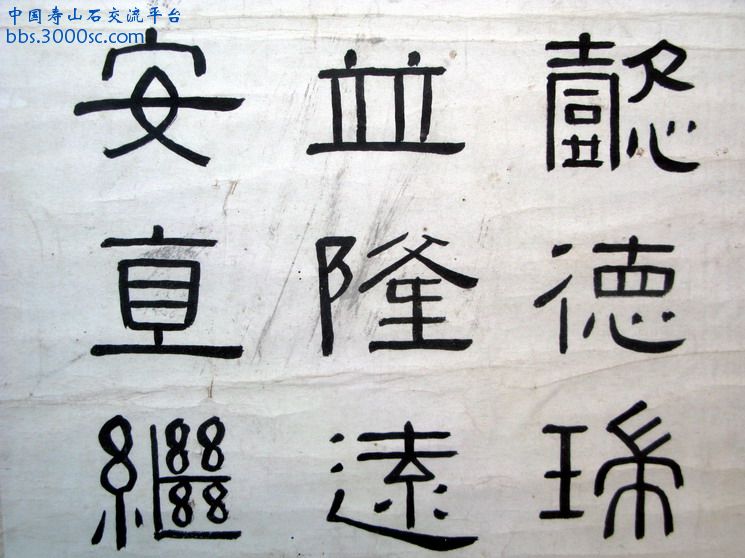 中国寿山石交流平台
bbs.3000sc.com
懿德珍
並隆遠
安直繼